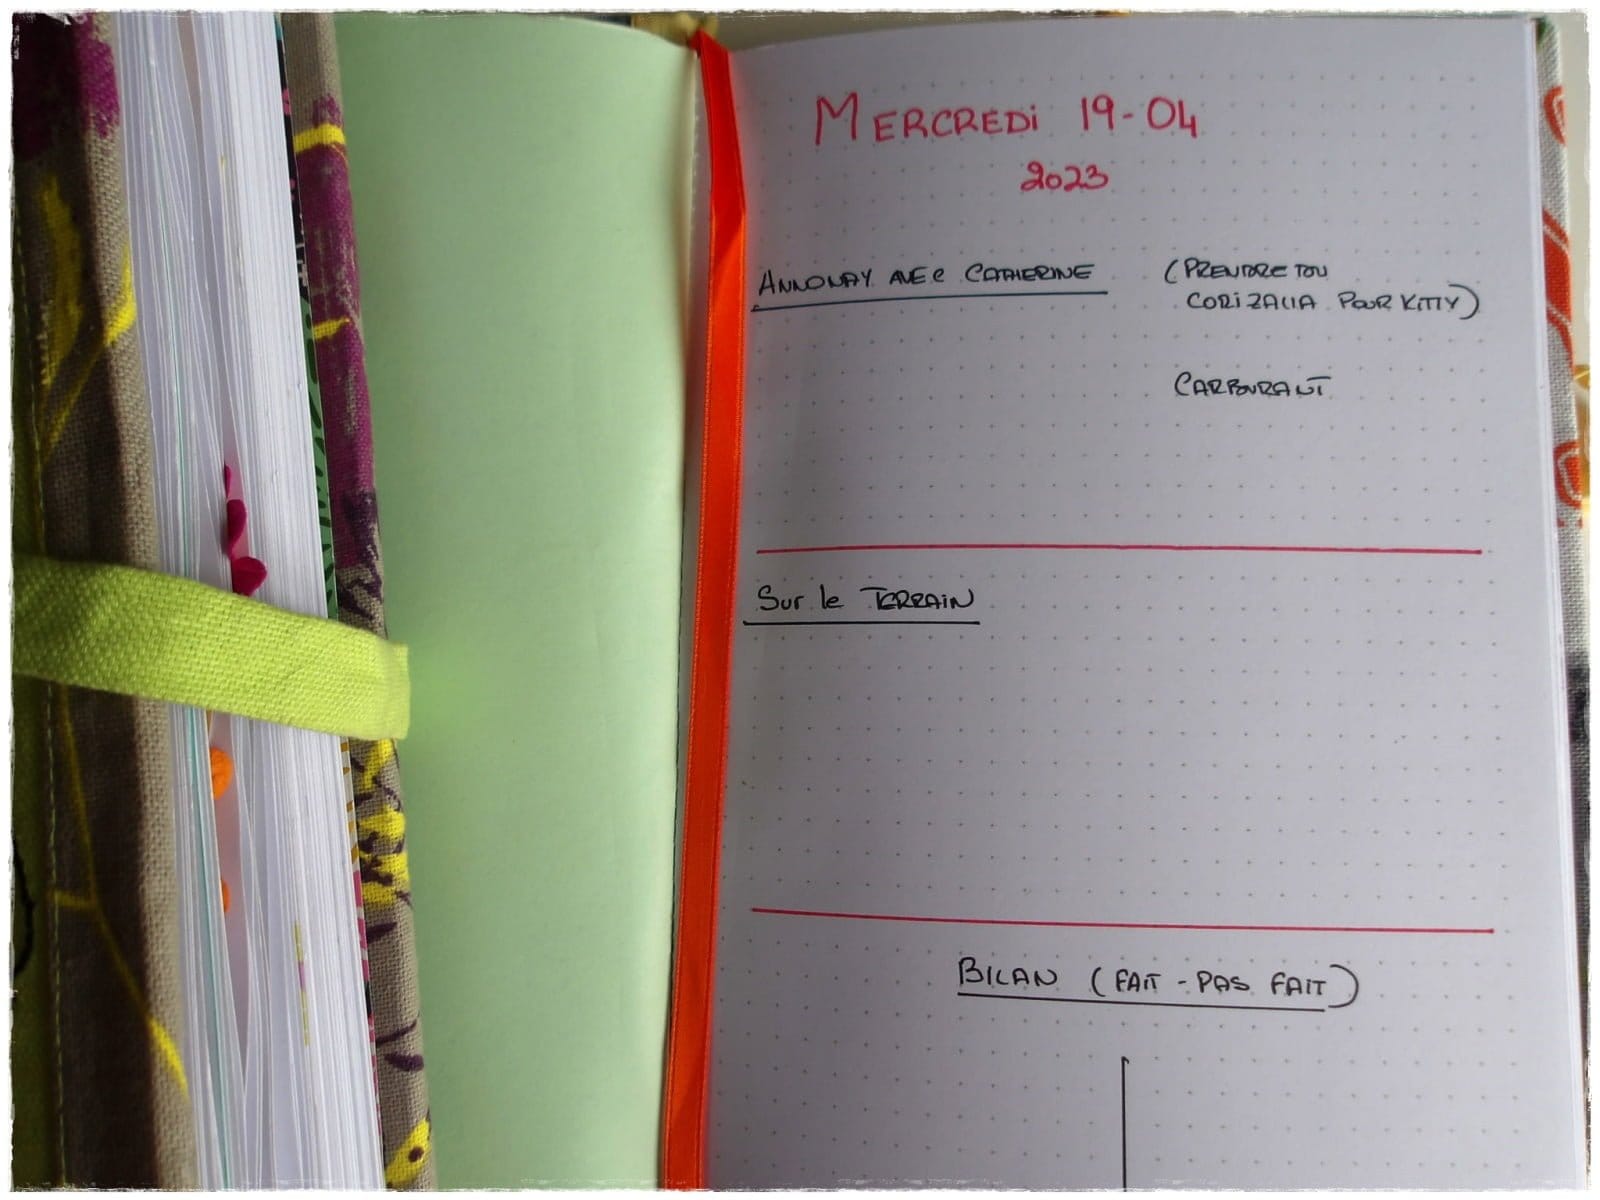 MERCREDi 19-04
2023
ANNONAY AVEC CATHERINE
(PRENDRE TON
CORiZALIA POUR KITTY)
CARBURANT
Sur le TERRAIN
BILAN (FAIT - PAS FAIT)